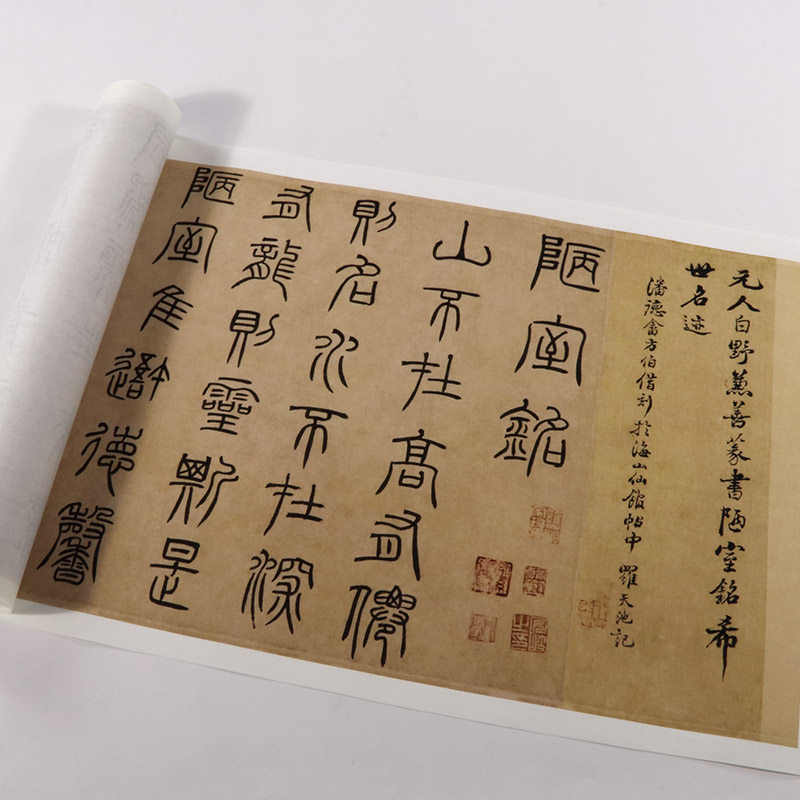 元人白野兼善篆書陋室銘希
世名迹
潘德畬方伯借刻於海山仙館帖中 羅天池記
陋室銘
山不在高有僊
則名水不在深
有龍則靈斯是
陋室隹德馨